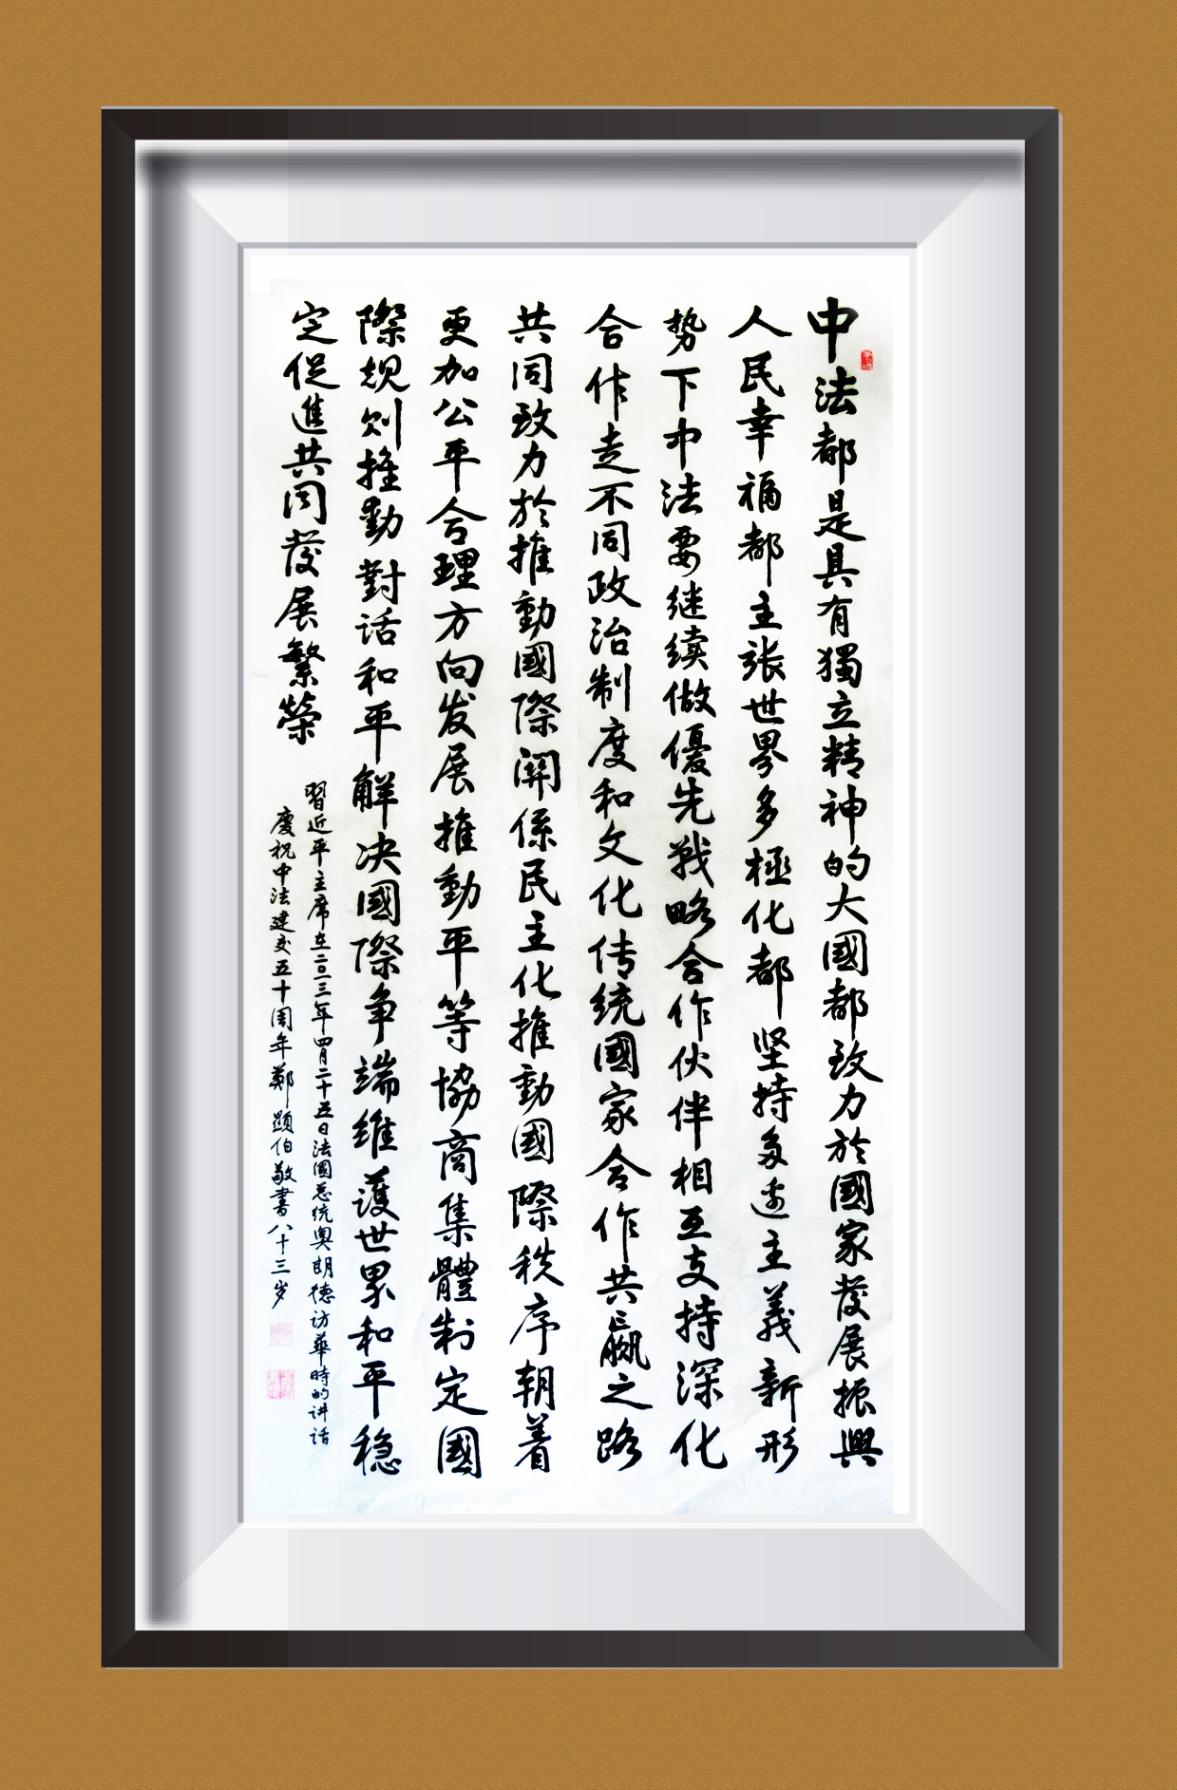 中法都是具有獨立精神的大國都致力於國家發展振興
人民幸福都主張世界多極化都坚持多边主義新形
势下中法要继续做優先戰略合作伙伴相互支持深化
合作走不同政治制度和文化传统國家合作共赢之路
共同致力於推動國際關係民主化推動國際秩序朝着
更加公平合理方向发展推動平等協商集體制定國
際規则推動對话和平解决國際争端维護世界和平稳
定促進共同發展繁榮
習近平主席在二〇一三年四月二十五日法國总统奥朗德访華時的讲话
慶祝中法建交五十周年鄭顕伯敬書八十三岁